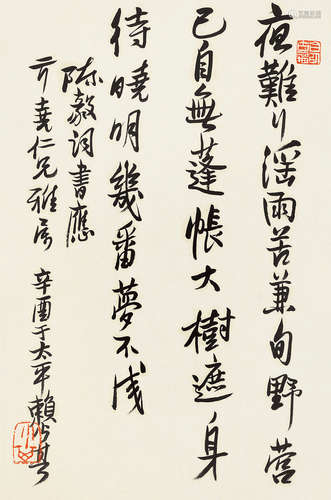 夜難行淫雨苦兼旬野营
已自無蓬帳大樹遮身
待曉明幾番夢不成
陈毅词書應
亓堯仁兄雅属
辛酉于太平賴少其